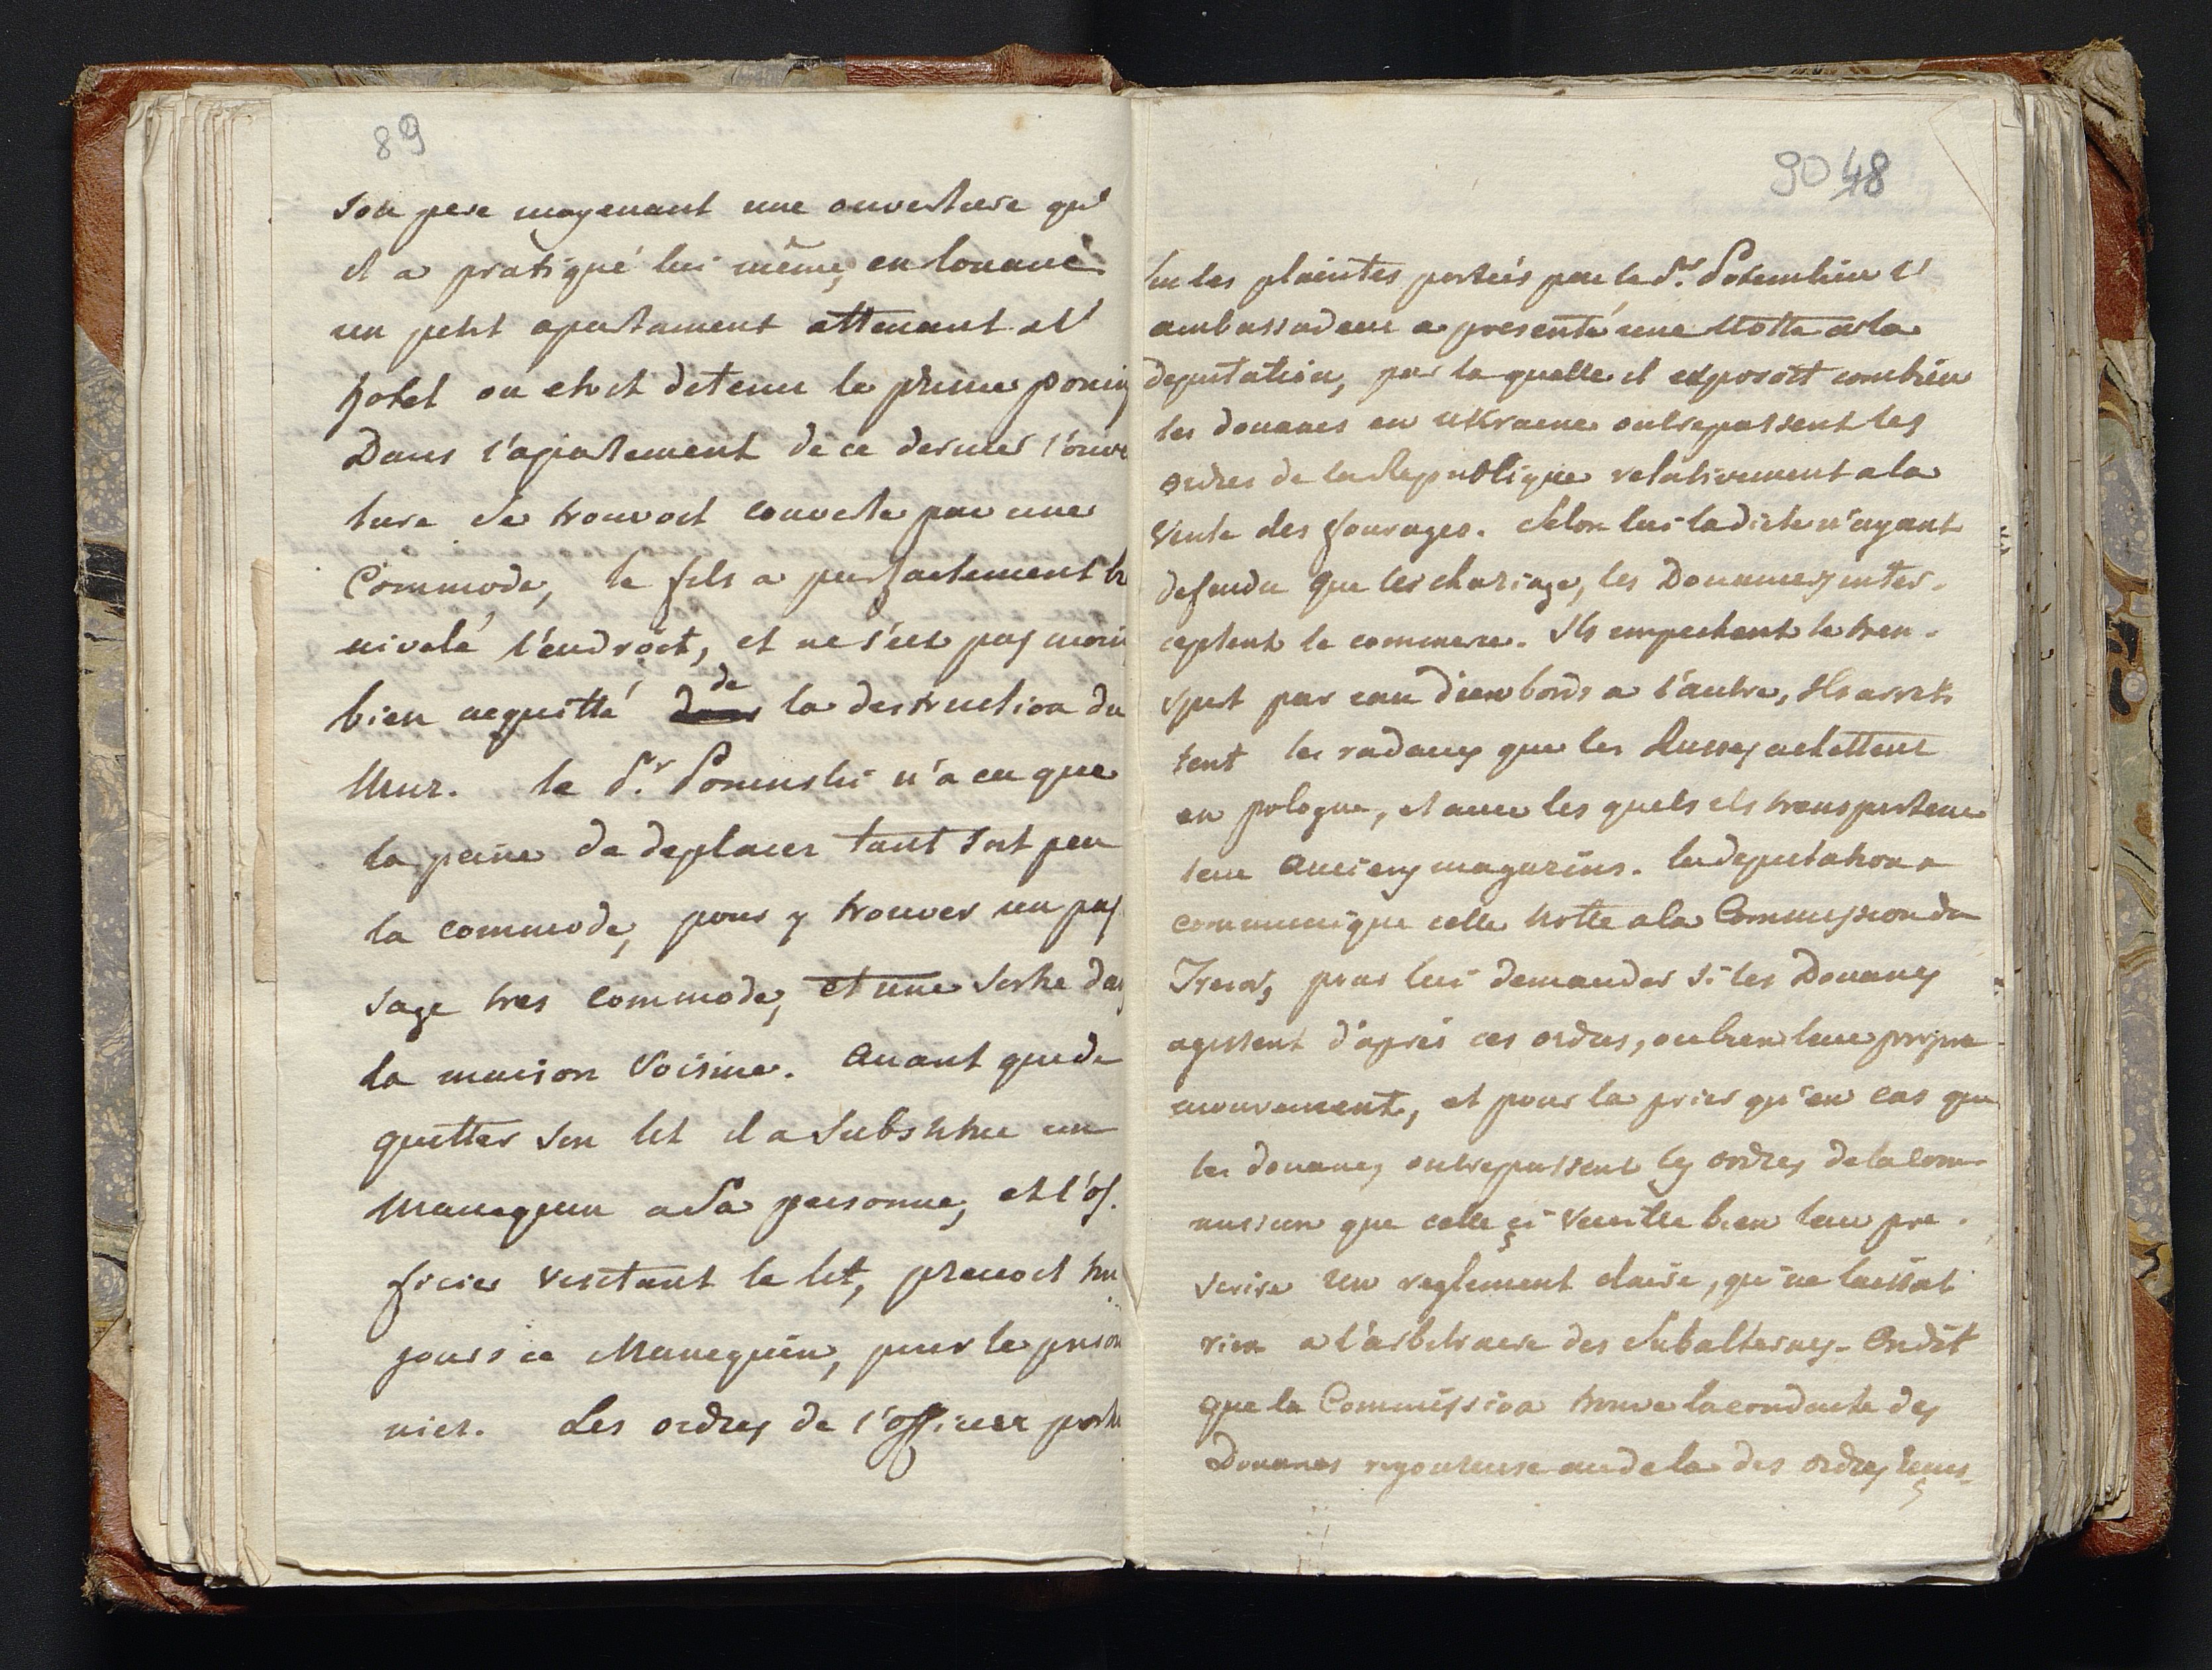 89
son pere moyenant une ouverture qu'
il a pratiqué lui même, en louant
un petit apartament attenant a l'
hotel ou etoit detenu le prince Ponin
Dans l'apartement de ce dernier l'ouve
ture se trouvoit couverte par une
Commode, le fils a parfaitement
nivelé l'endroit, et ne s'est pas moin
bien acquitté de la destruction du
Mur. le Sr. Poninski n'a eu que
la peine de deplacer tant soit peu
la commode, pour y trouver un pas
sage tres commode, et une sortie da
la maison Voisine. Avant que de
quitter son lit il a substitue un
Manequin a Sa personne, et l'of.
ficier visitant le lit, prenoit tou
jours ce Manequin, pour le prison
nier. Les ordres de l'officier porte
90 48
Sur les plaintes porteés par le Sr. Potemkin l'
ambassadeur a presenté une Notte a la
deputation, par la quelle il exposoit combien
les douanes en ukraine outrepassent les
ordres de la Republique relativement a la
Vente des fourages. Selon lui la diete n'ayant
defendu que les chariage, les Douannes inter-
ceptent le commerce. Ils empechent le tran-
sport par eau d'un bords a l'autre, Ils arret-
tent les radeaux que les Russes achettent
en pologne, et avec les quels ils transportent
leur anciens magazins. la deputation a
communique cette notte a la Commission du
Tresor, pour lui demander si les Douanes
agissent d'aprés ces ordres, ou bien leur propre
mouvement, et pour la prier qu'en cas que
les douanes outrepassent les ordres de la Com-
mission que celle çi veuille bien leur pre-
scrire un reglement claire, qui ne laissat
rien a l'arbitraire des Subalternes. On dit
que la Commission trouve la conduite des
Douanes rigoureuse au dela des ordres